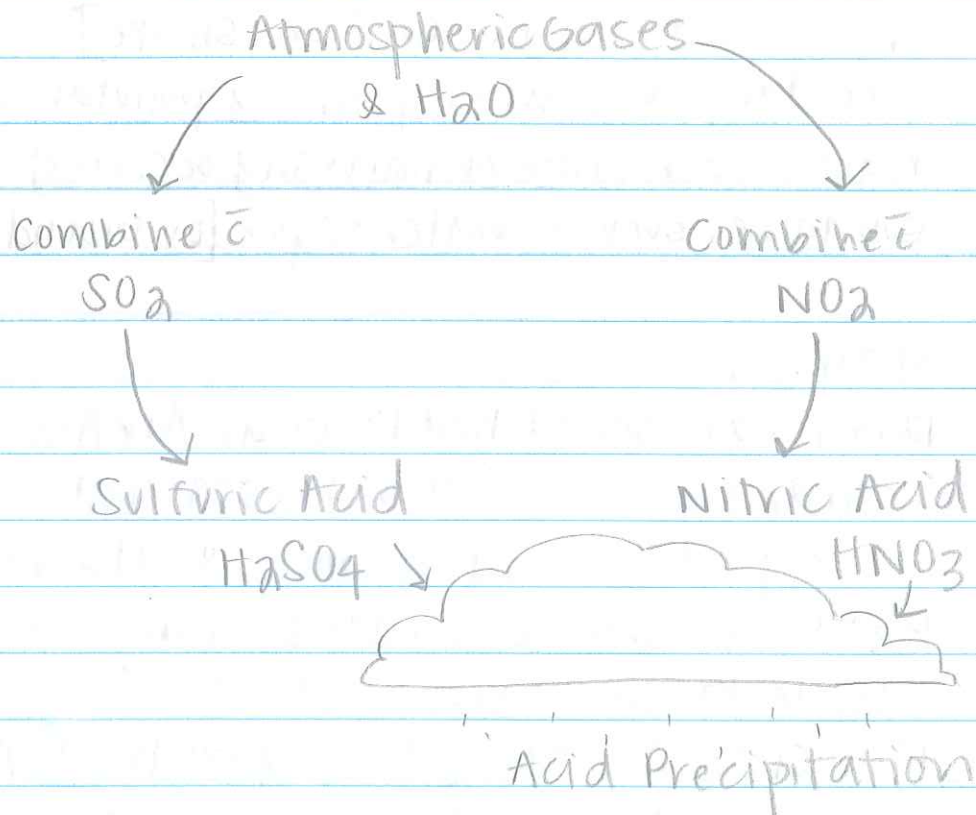 Atmospheric Gases
& H2O
Combine c̄
SO2
Combine c̄
NO2
Sulfuric Acid
H2SO4
Nitric Acid
HNO3
Acid Precipitation